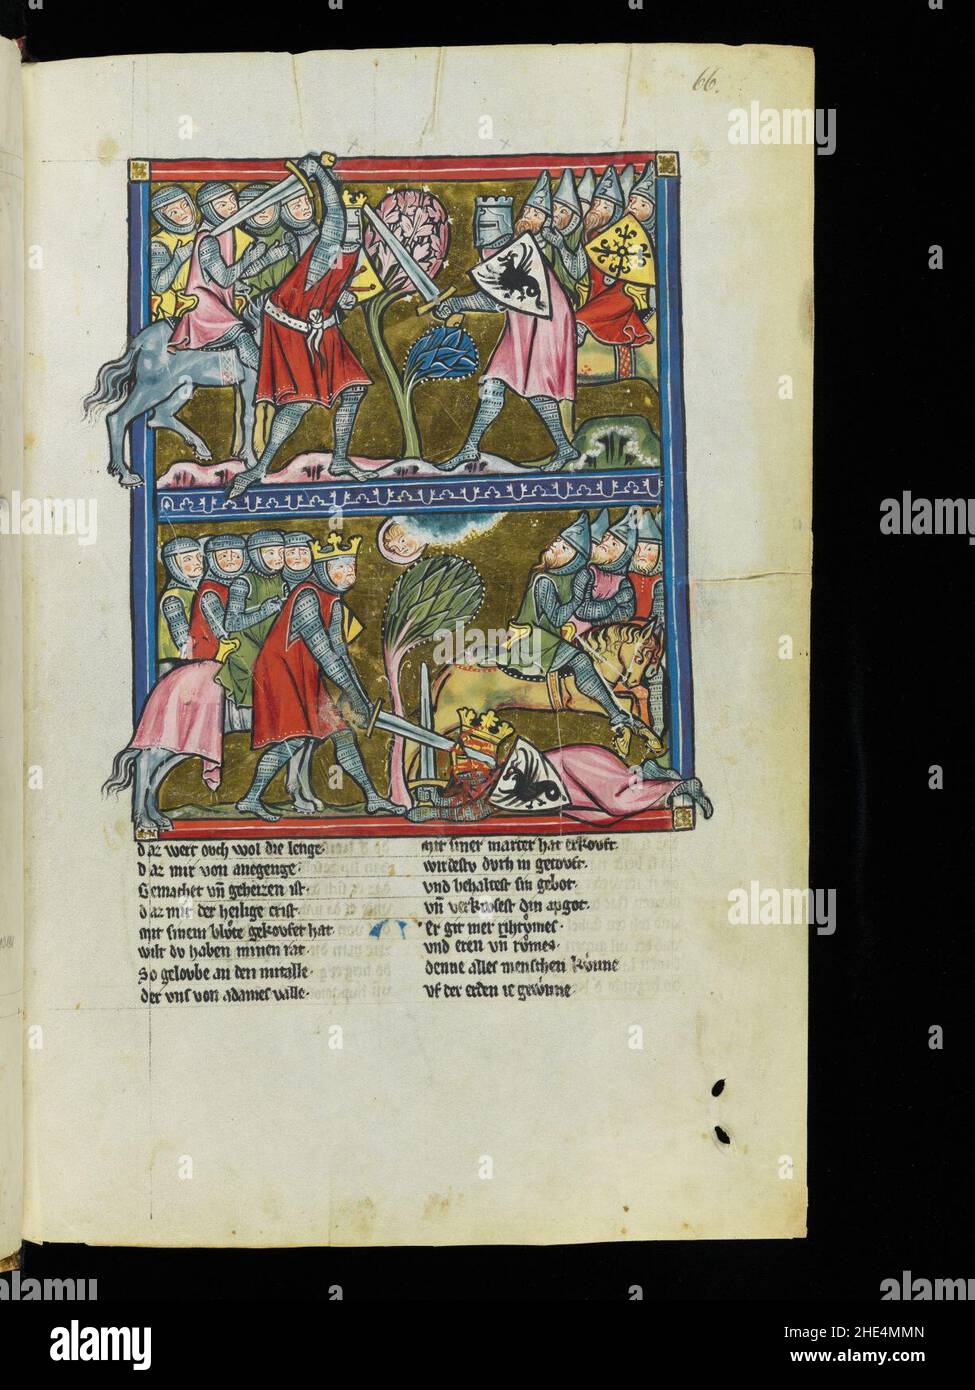 66.
daz wert ouch wol die lenge·
daz mir von anegenge·
Gemachet vñ geheizen ist·
daz mir der heilige crist·
mit sinem blůte gekoufet hat·
wilt du haben minen rat·
So geloube an den mit alle·
der vns von adames valle·
mit siner marter hat erkouft·
wirdestv dvrh in getouft·
vnd behaltest sin gebot·
vñ verkiosest din apgot·
Er git mer rihtv̊mes·
vnd eren vñ rv̊mes·
denne alles menschen kv̊nne
vf der erden ie gewunne·
alamy
Image ID: 2HE4MMN
www.alamy.com